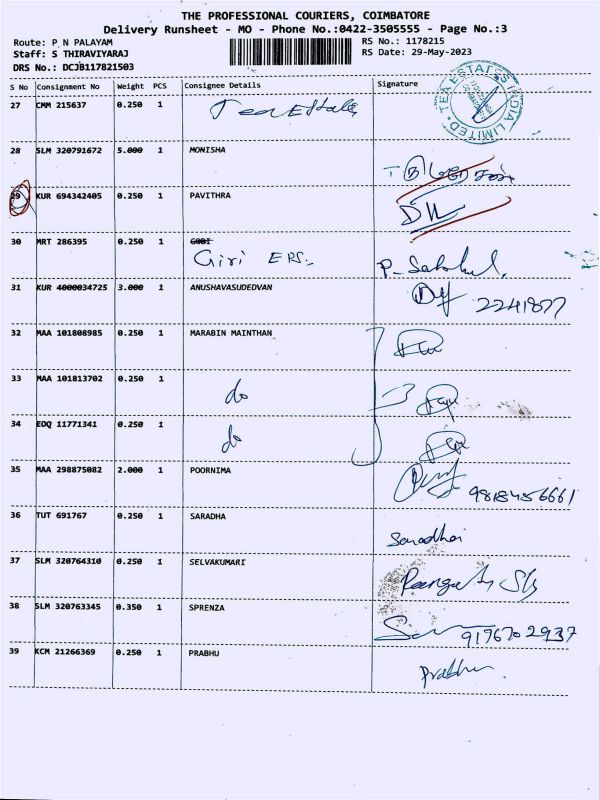 THE PROFESSIONAL COURIERS, COIMBATORE
Delivery Runsheet - MO - Phone No.:0422-3505555 - Page No.:3
Route: P N PALAYAM
RS No.: 1178215
Staff: S THIRAVIYARAJ
RS Date: 29-May-2023
DRS No.: DCJB117821503
S No Consignment No Weight PCS Consignee Details Signature
27 CMM 215637 0.250 1 Tea Estate
TEA ESTATES INDIA LIMITED
28 SLM 320791672 5.000 1 MONISHA
29 KUR 694342405 0.250 1 PAVITHRA
30 MRT 286395 0.250 1 GOBI
Giri EPS.
31 KUR 4000034725 3.000 1 ANUSHAVASUDEDVAN
2241877
32 MAA 101808985 0.250 1 MARABIN MAINTHAN
33 MAA 101813702 0.250 1 do
34 EDQ 11771341 0.250 1 do
35 MAA 298875082 2.000 1 POORNIMA
9818456661
36 TUT 691767 0.250 1 SARADHA
Saradha
37 SLM 320764310 0.250 1 SELVAKUMARI
38 SLM 320763345 0.350 1 SPRENZA
9176702937
39 KCM 21266369 0.250 1 PRABHU
Prabhu